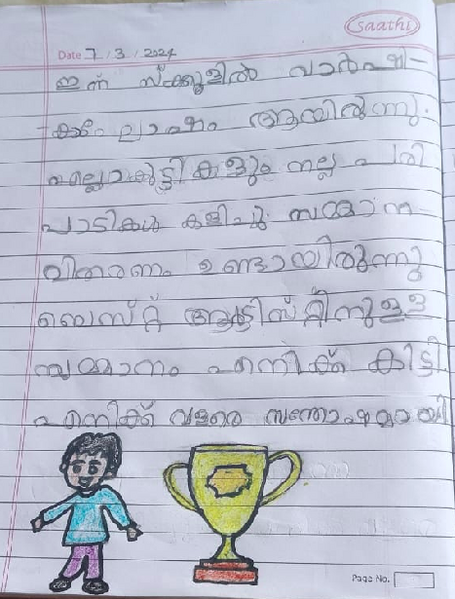 saathi
Date 7/3/2024
ഇന്ന് സ്ക്കൂളിൽ വാർഷി-
കാഘോഷം ആയിരുന്നു.
എല്ലാകുട്ടികളും നല്ല പരി
പാടികൾ കളിച്ചു സമ്മാന
വിതരണം ഉണ്ടായിരുന്നു
ബെസ്റ്റ് ആർട്ടിസ്റ്റിനുള്ള
സമ്മാനം എനിക്ക് കിട്ടി
എനിക്ക് വളരെ സന്തോഷമായി
Page No.